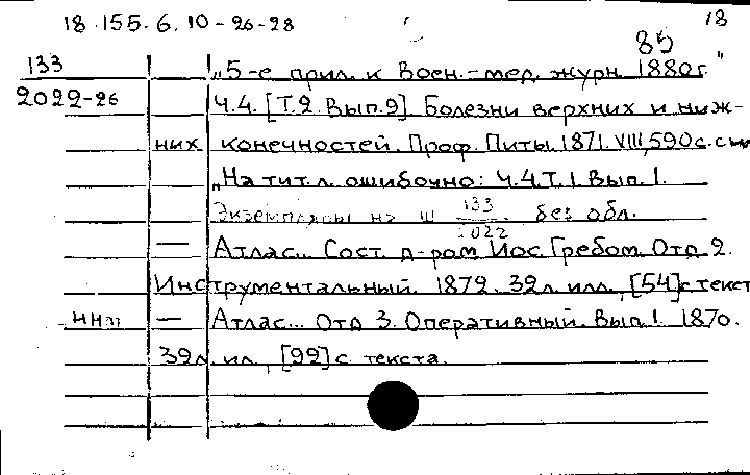 18.155.6.10-26-28 18
85
133 „5-е прил. к Воен.-мед. журн. 1880г."
2022-26 Ч.4. [Т.2. Вып.2]. Болезни верхних и ниж-
них конечностей. Проф. Питы. 1871. VIII, 590с. с
„На тит. л. ошибочно: Ч.4. Т.1. Вып.1.
Экземпляры на Ш 133/2022 без обл.
— Атлас... Сост. д-ром Иос. Гребом. Отд. 2.
Инструментальный. 1872. 32л. илл., [54]с текст
— Атлас... Отд. 3. Оперативный. Вып.1. 1870.
32л. ил., [92]с текста.